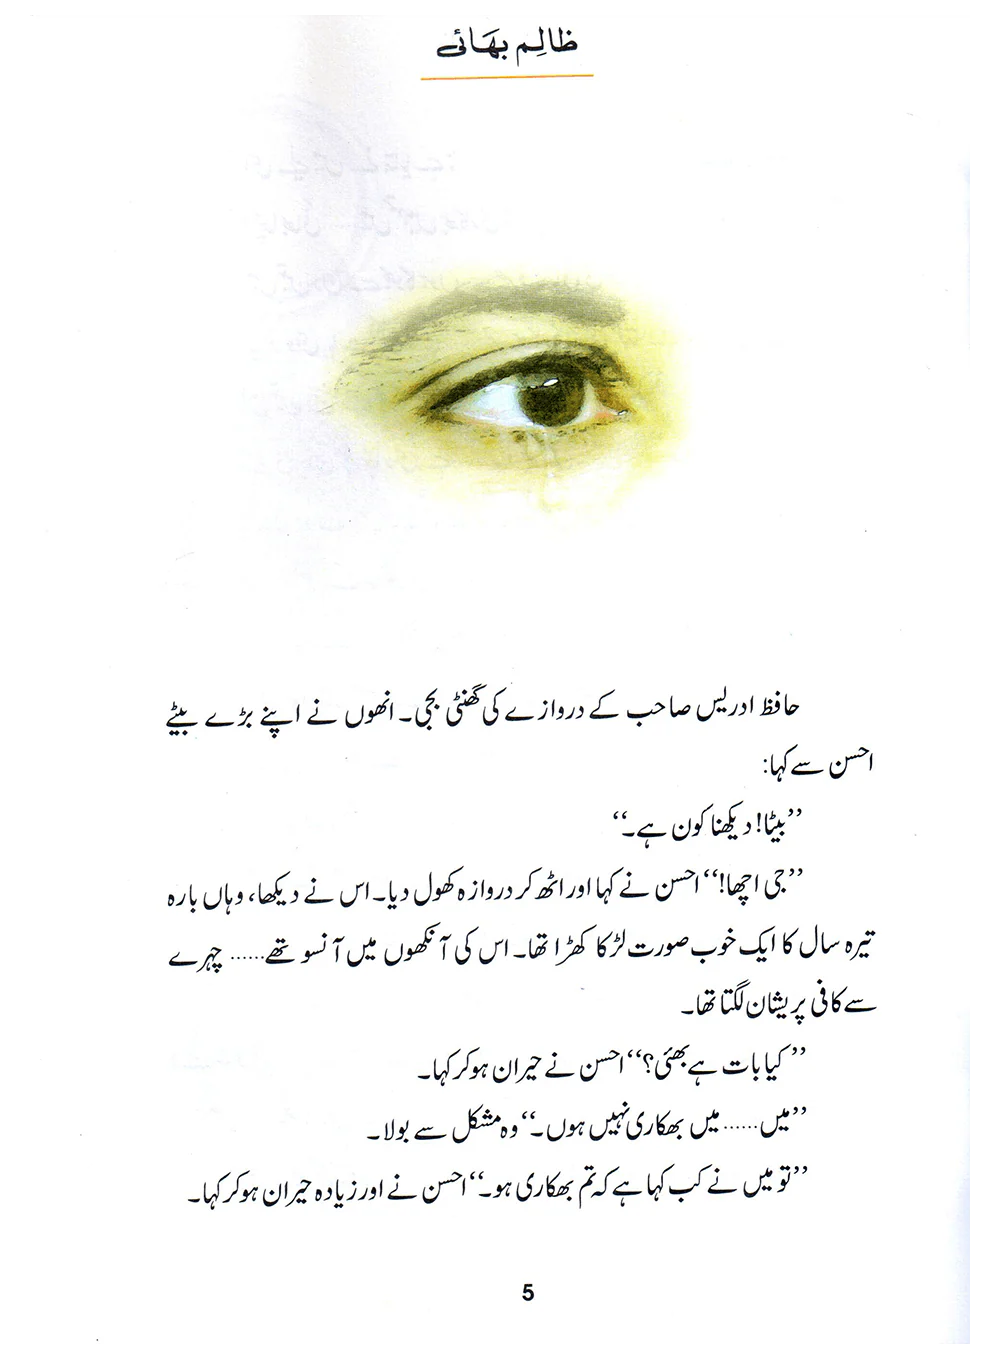 ظالِم بھَائی
حافظ ادریس صاحب کے دروازے کی گھنٹی بجی۔ انھوں نے اپنے بڑے بیٹے
احسن سے کہا:
’’بیٹا! دیکھنا کون ہے۔‘‘
’’جی اچھا!‘‘ احسن نے کہا اور اٹھ کر دروازہ کھول دیا۔ اس نے دیکھا، وہاں بارہ
تیرہ سال کا ایک خوب صورت لڑکا کھڑا تھا۔ اس کی آنکھوں میں آنسو تھے...... چہرے
سے کافی پریشان لگتا تھا۔
’’کیا بات ہے بھئی؟‘‘ احسن نے حیران ہو کر کہا۔
’’میں...... میں بھکاری نہیں ہوں۔‘‘ وہ مشکل سے بولا۔
’’تو میں نے کب کہا ہے کہ تم بھکاری ہو۔‘‘ احسن نے اور زیادہ حیران ہو کر کہا۔
5